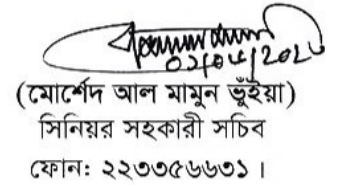 (মোর্শেদ আল মামুন ভূঁইয়া)
সিনিয়র সহকারী সচিব
ফোন: ২২৩৩৫৬৬৩১ ।